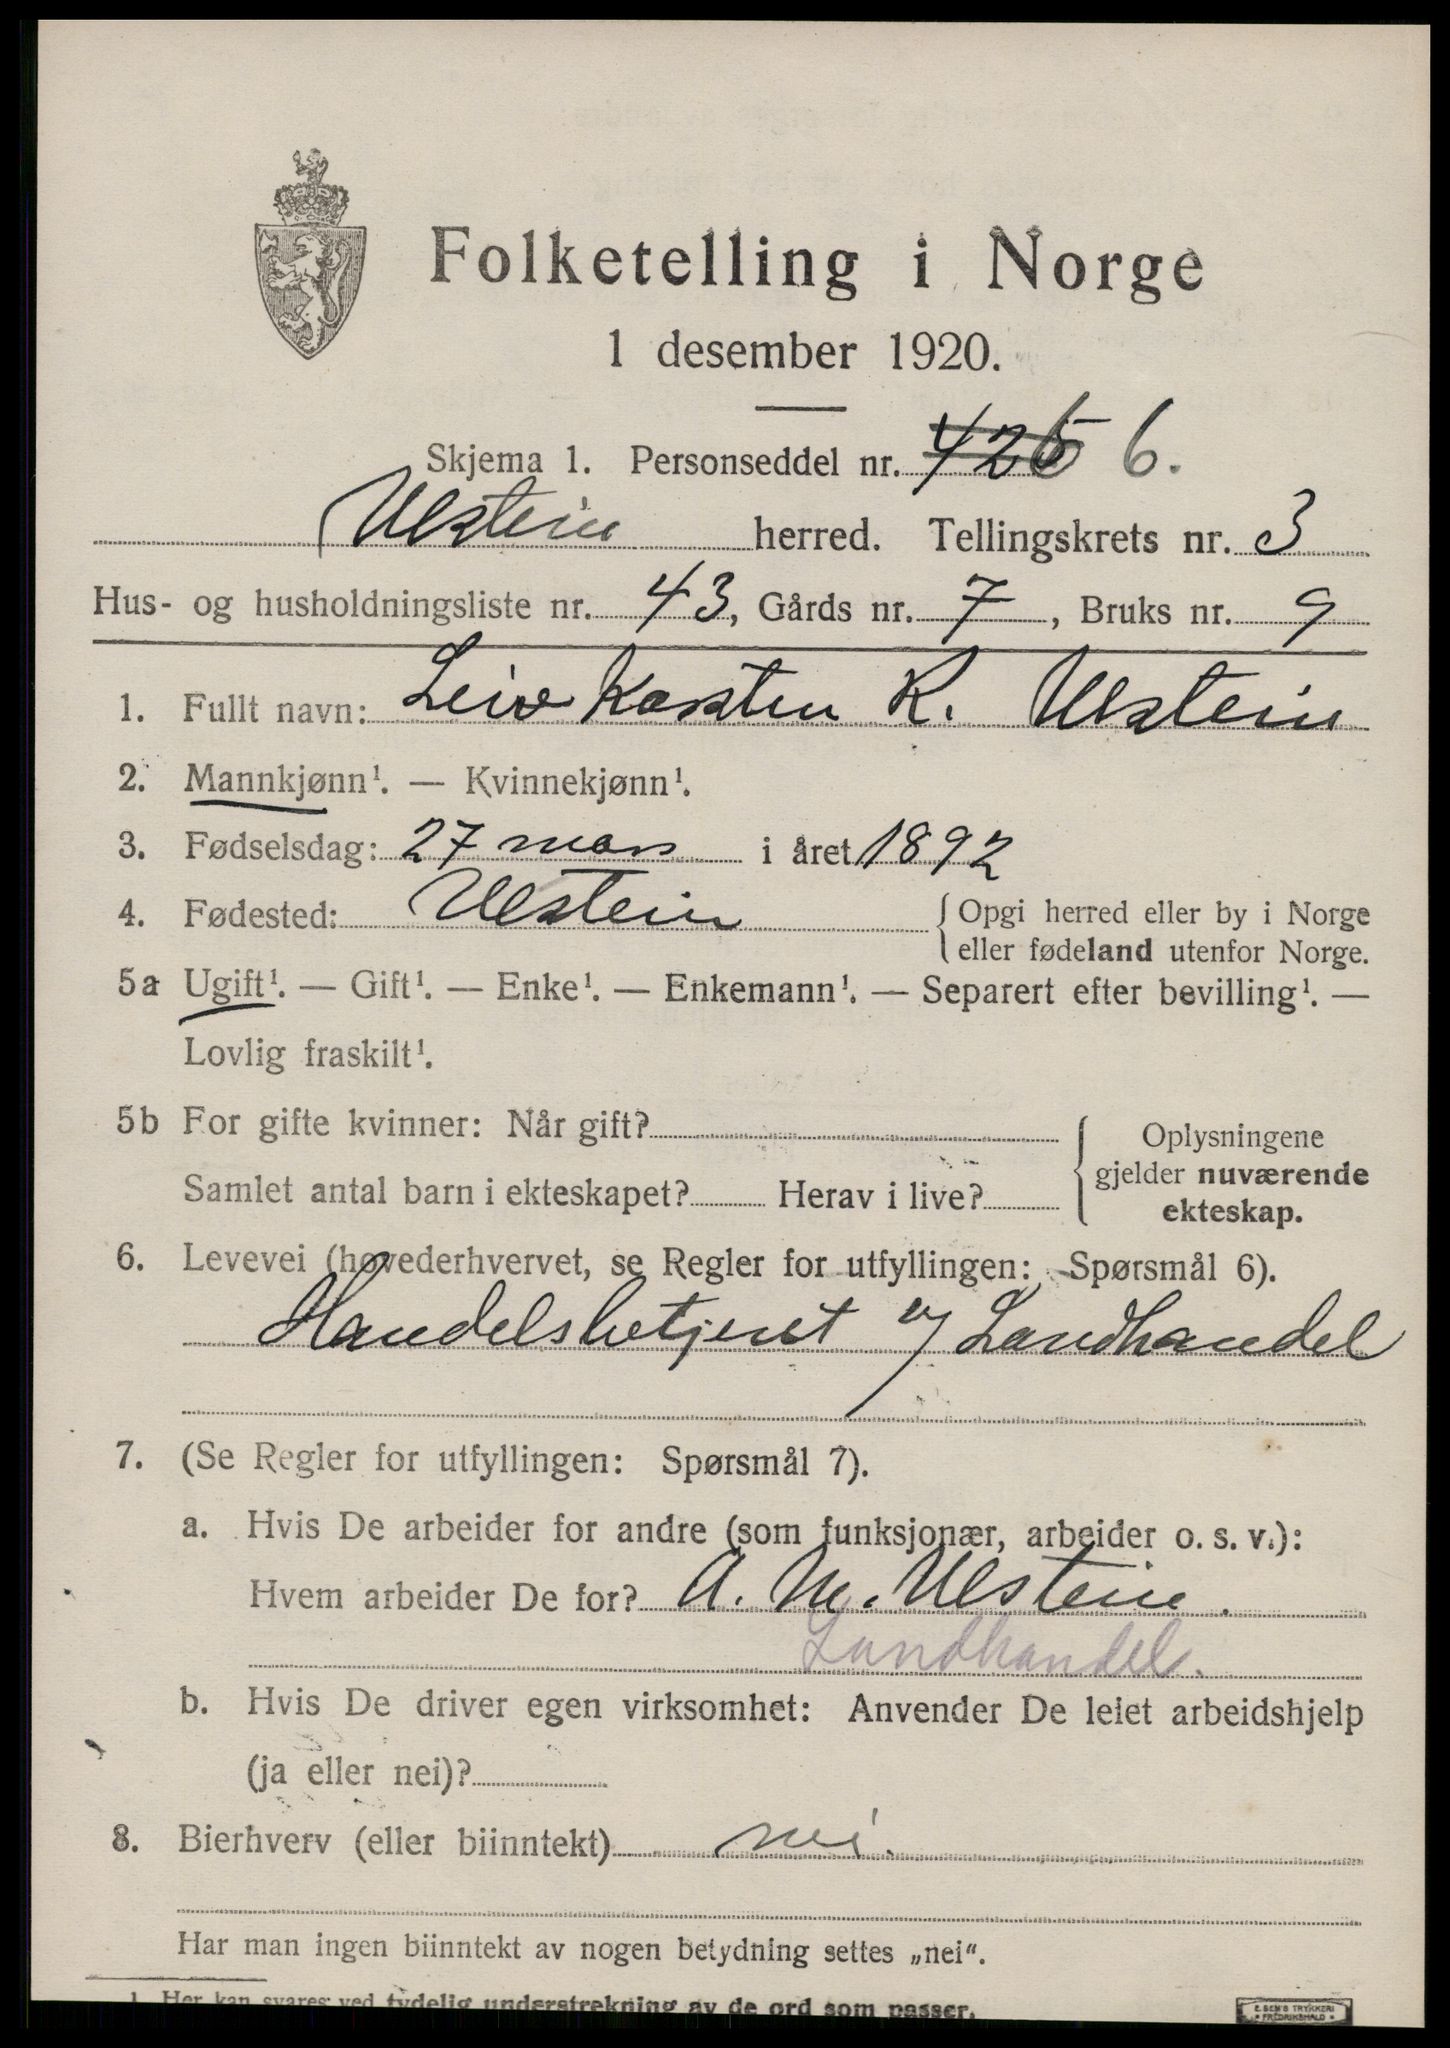 Folketelling i Norge
1 desember 1920.
Skjema 1. Personseddel nr. 425 6.
Ulstein herred. Tellingskrets nr. 3
Hus- og husholdningsliste nr. 43, Gårds nr. 7, Bruks nr. 9
1. Fullt navn: Leiv Karsten R. Ulstein
2. Mannkjønn¹. — Kvinnekjønn¹.
3. Fødselsdag: 27 mars i året 1892
4. Fødested: Ulstein { Opgi herred eller by i Norge
eller fødeland utenfor Norge.
5a Ugift¹. — Gift¹. — Enke¹. — Enkemann¹. — Separert efter bevilling¹. —
Lovlig fraskilt¹.
5b For gifte kvinner: Når gift? { Oplysningene
gjelder nuværende
Samlet antal barn i ekteskapet? Herav i live? ekteskap.
6. Levevei (hovederhvervet, se Regler for utfyllingen: Spørsmål 6).
Handelsbetjent v/ Landhandel
7. (Se Regler for utfyllingen: Spørsmål 7).
a. Hvis De arbeider for andre (som funksjonær, arbeider o. s. v.):
Hvem arbeider De for? A. M. Ulstein.
Landhandel.
b. Hvis De driver egen virksomhet: Anvender De leiet arbeidshjelp
(ja eller nei)?
8. Bierhverv (eller biinntekt) nei.
Har man ingen biinntekt av nogen betydning settes „nei“.
1 Her kan svares ved tydelig understrekning av de ord som passer.
E. SEM'S TRYKKERI
FREDRIKSHALD